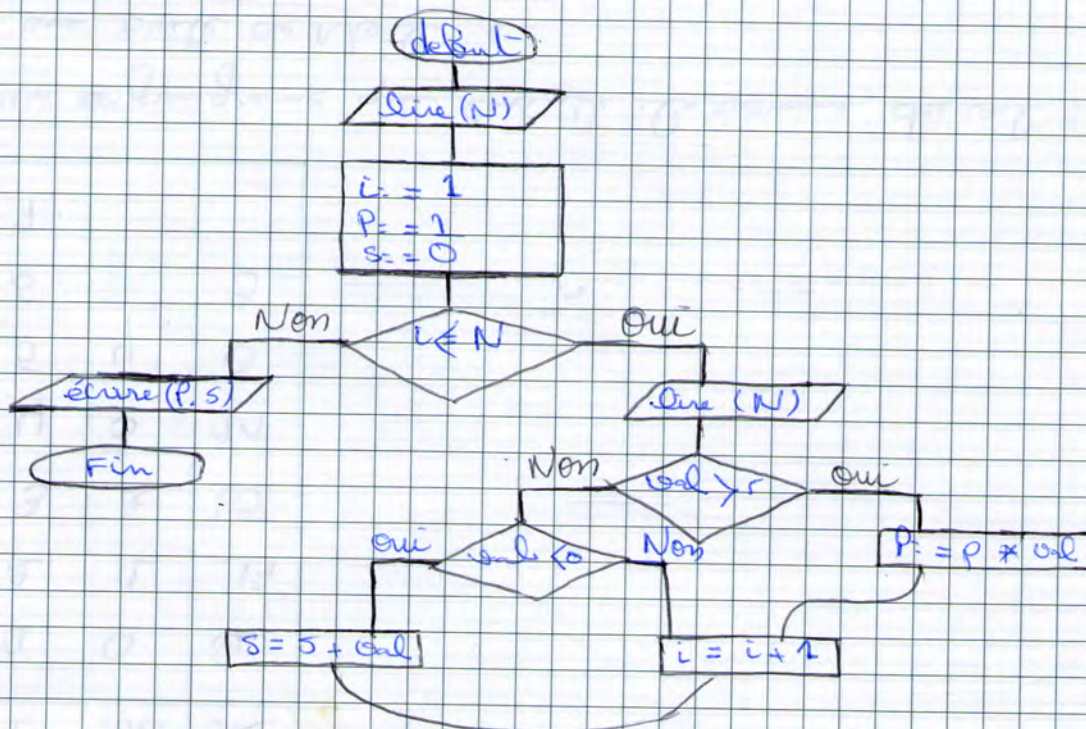 debut
lire (N)
i: = 1
P: = 1
S: = 0
Non
i ≤ N
Oui
écrire (P, S)
lire (N)
Fin
Non
oui
oui
val < 0
Non
P: = P * val
S = S + val
i = i + 1